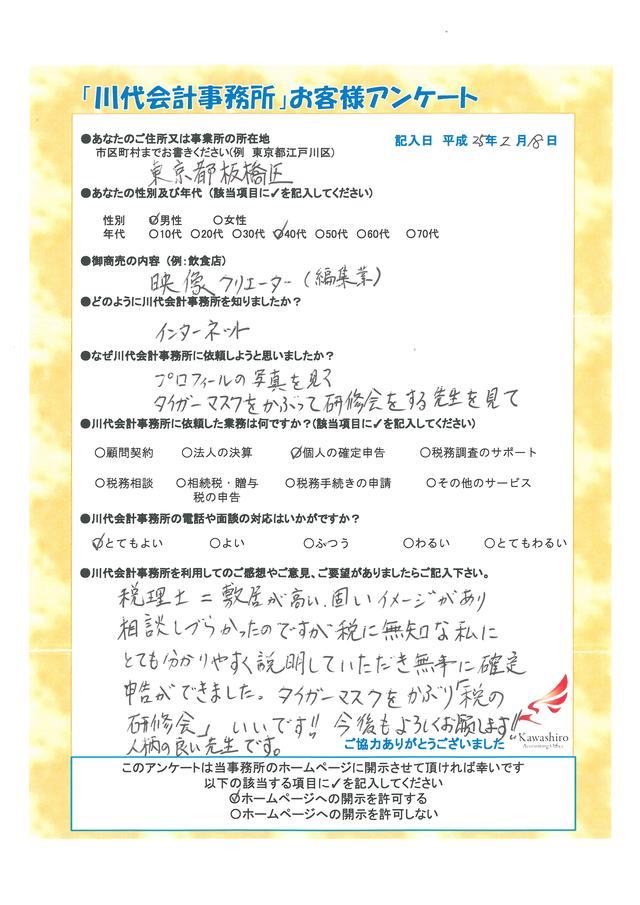 「川代会計事務所」お客様アンケート
●あなたのご住所又は事業所の所在地
記入日 平成 25年 2月 18日
市区町村までお書きください(例 東京都江戸川区)
東京都板橋区
●あなたの性別及び年代 (該当項目に✓を記入してください)
性別 ○男性 ○女性
年代 ○10代 ○20代 ○30代 ○40代 ○50代 ○60代 ○70代
●御商売の内容 (例:飲食店)
映像クリエーター(編集業)
●どのように川代会計事務所を知りましたか?
インターネット
●なぜ川代会計事務所に依頼しようと思いましたか?
プロフィールの写真を見て
タイガーマスクをかぶって研修会をする先生を見て
●川代会計事務所に依頼した業務は何ですか?(該当項目に✓を記入してください)
○顧問契約 ○法人の決算 ○個人の確定申告 ○税務調査のサポート
○税務相談 ○相続税・贈与 ○税務手続きの申請 ○その他のサービス
税の申告
●川代会計事務所の電話や面談の対応はいかがですか?
○とてもよい ○よい ○ふつう ○わるい ○とてもわるい
●川代会計事務所を利用してのご感想やご意見、ご要望がありましたらご記入下さい。
税理士=敷居が高い、固いイメージがあり
相談しづらかったのですが税に無知な私に
とても分かりやすく説明していただき無事に確定
申告ができました。タイガーマスクをかぶり「税の
研修会」いいです!! 今後もよろしくお願します!!
人柄の良い先生です。
ご協力ありがとうございました
Kawashiro
Accounting Office
このアンケートは当事務所のホームページに開示させて頂ければ幸いです
以下の該当する項目に✓を記入してください
○ホームページへの開示を許可する
○ホームページへの開示を許可しない